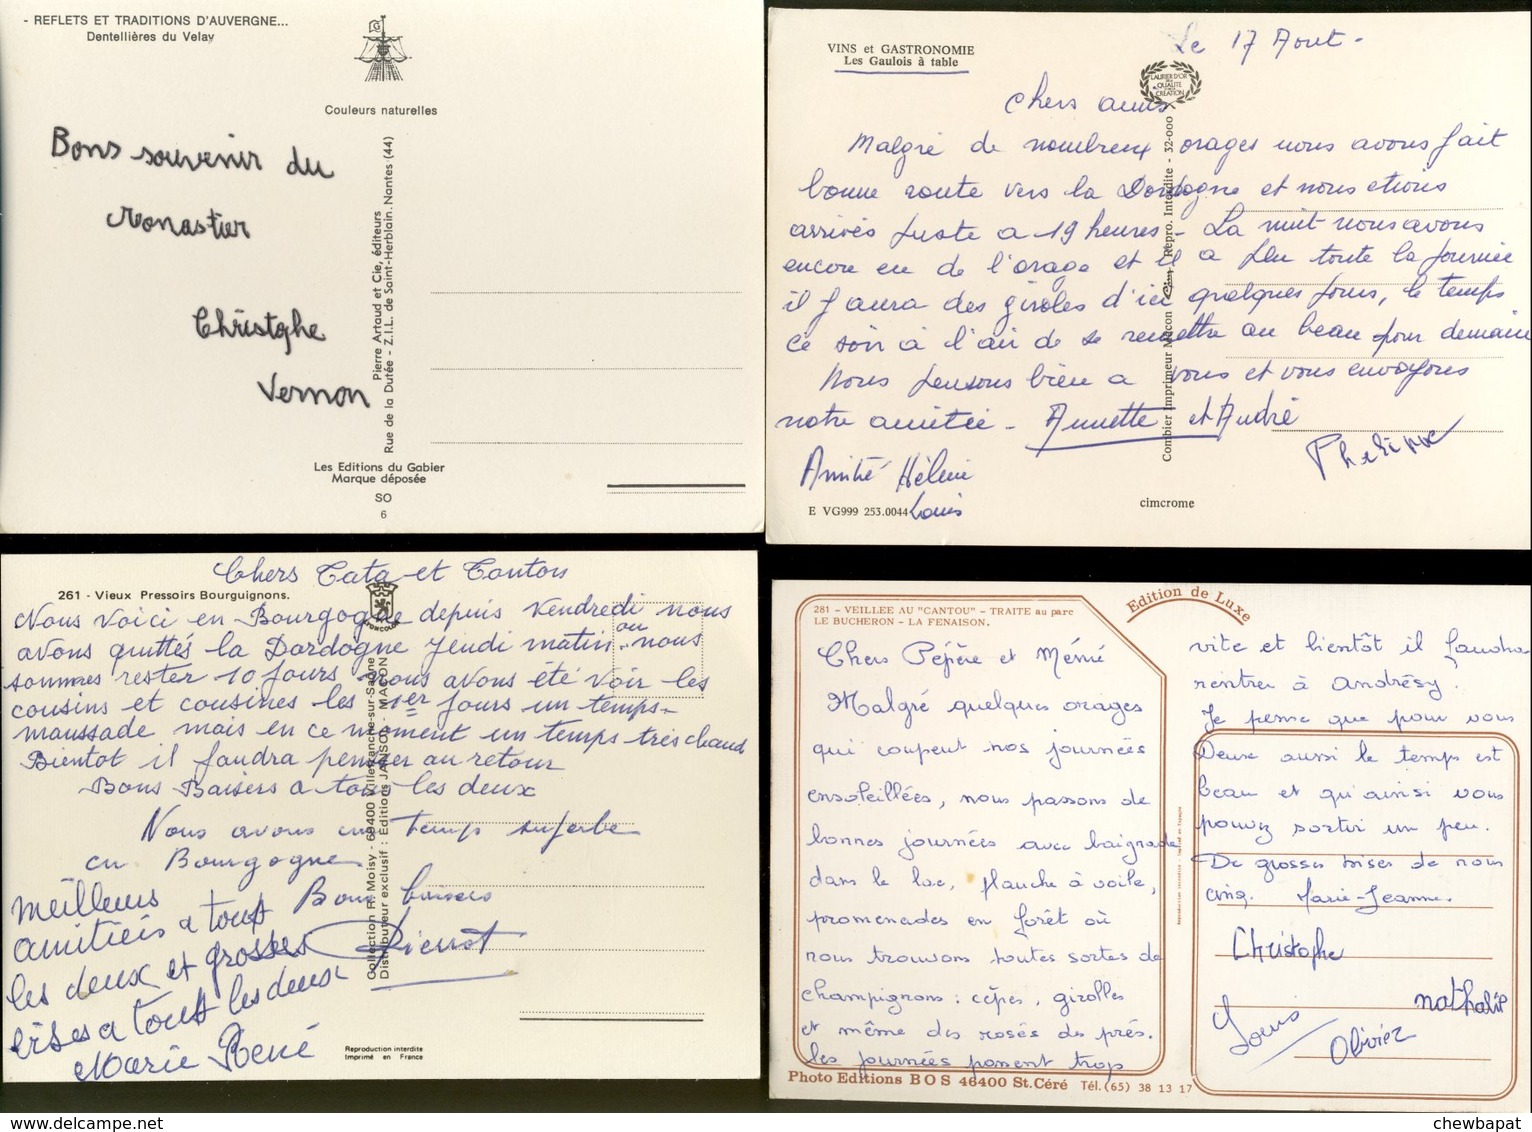 - REFLETS ET TRADITIONS D'AUVERGNE...
Dentellières du Velay
G
Couleurs naturelles
Bons souvenir du
Monastier
Christophe
Vernon
Pierre Artaud et Cie, éditeurs
Rue de la Dutée - Z.I.L. de Saint-Herblain. Nantes (44)
Les Editions du Gabier
Marque déposée
SO
6
Le 17 Aout -
VINS et GASTRONOMIE
Les Gaulois à table
LAURIER D'OR
DE LA
QUALITE
CREATION
Chers amis
Malgré de nombreux orages nous avons fait
bonne route vers la Dordogne et nous etions
arrivés juste a 19 heures - La nuit nous avons
encore eu de l'orage et il a plu toute la journée
il y aura des giroles d'ici quelques jours, le temps
ce soir à l'air de se remettre au beau pour demain
Nous pensons bien a vous et vous envoyons
notre amitié - Annette et André
Amitié Hélène
Louis
Combier Imprimeur Mâcon Cim Repro. Interdite - 32-000
E VG999 253.0044
cimcrome
Chers Tata et Tonton
261 - Vieux Pressoirs Bourguignons.
Nous voici en Bourgogne depuis vendredi nous
avons quittés la Dordogne jeudi matin ou nous
sommes rester 10 jours nous avons été voir les
cousins et cousines les 1er jours un temps
maussade mais en ce moment un temps très chaud
Bientot il faudra penser au retour
Bons Baisers a tous les deux
Nous avons un temps superbe
en Bourgogne
Bons baisers
Pierrot
meilleurs
amitiés a tous
les deux et grosses
bises a tous les deux
Marie René
Collection R. Moisy - 69400 Villefranche-sur-Saône
Distributeur exclusif : Editions JANSOL - MACON
Reproduction interdite
Imprimé en France
281 - VEILLEE AU "CANTOU" - TRAITE au parc
LE BUCHERON - LA FENAISON.
Edition de Luxe
Chers Pépère et Mémé
Malgré quelques orages
qui coupent nos journées
ensoleillées, nous passons de
bonnes journées avec baignade
dans le lac, planche à voile,
promenades en forêt où
nous trouvons toutes sortes de
champignons : cèpes, girolles
et même des rosés des prés.
Les journées passent trop
vite et bientôt il faudra
rentrer à Andrésy.
Je pense que pour vous
Deux aussi le temps est
beau et qu'ainsi vous
pouvez sortir un peu.
De grosses bises de nous
cinq. Marie-Jeanne.
Christophe
nathalie
Louis
Olivier
Photo Editions BOS 46400 St.Céré Tél.(65) 38 13 17
chewbapat